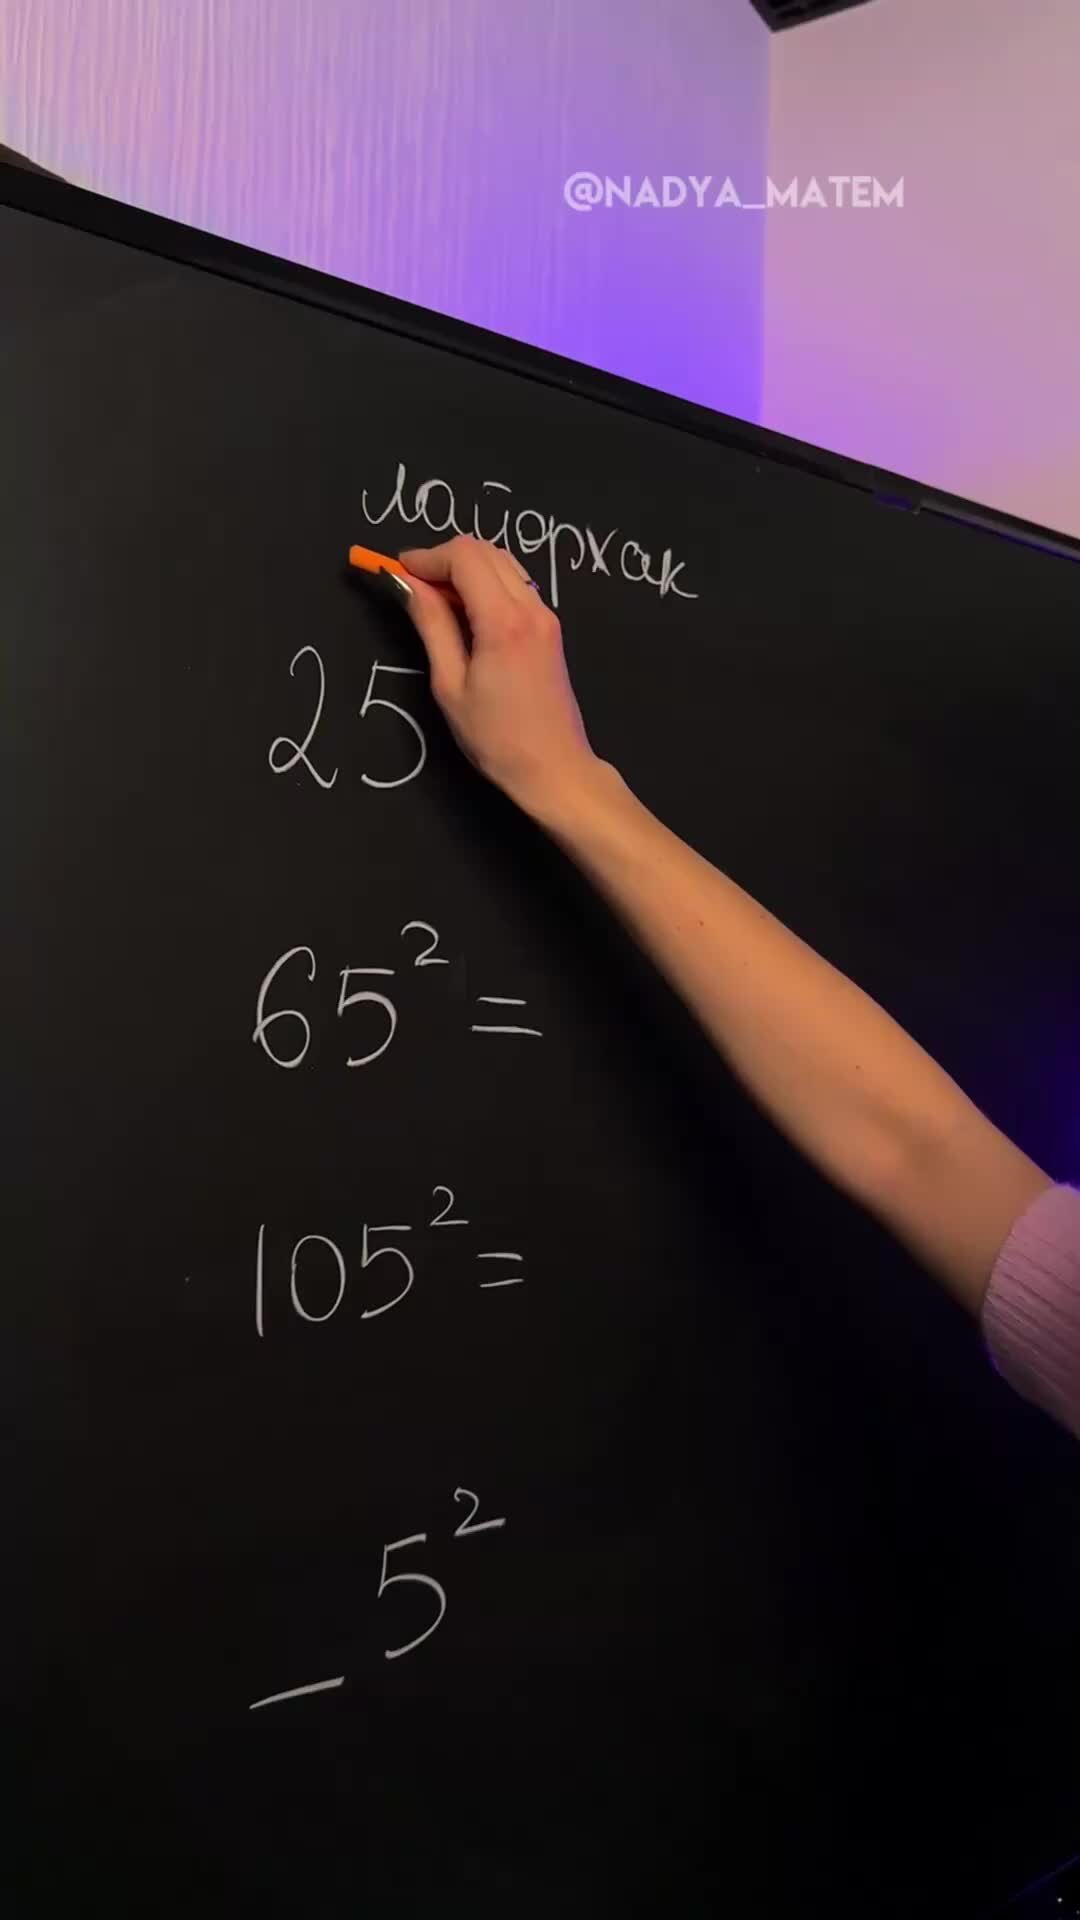 @NADYA_MATEM
лайфхак
25
65²=
105²=
_5²